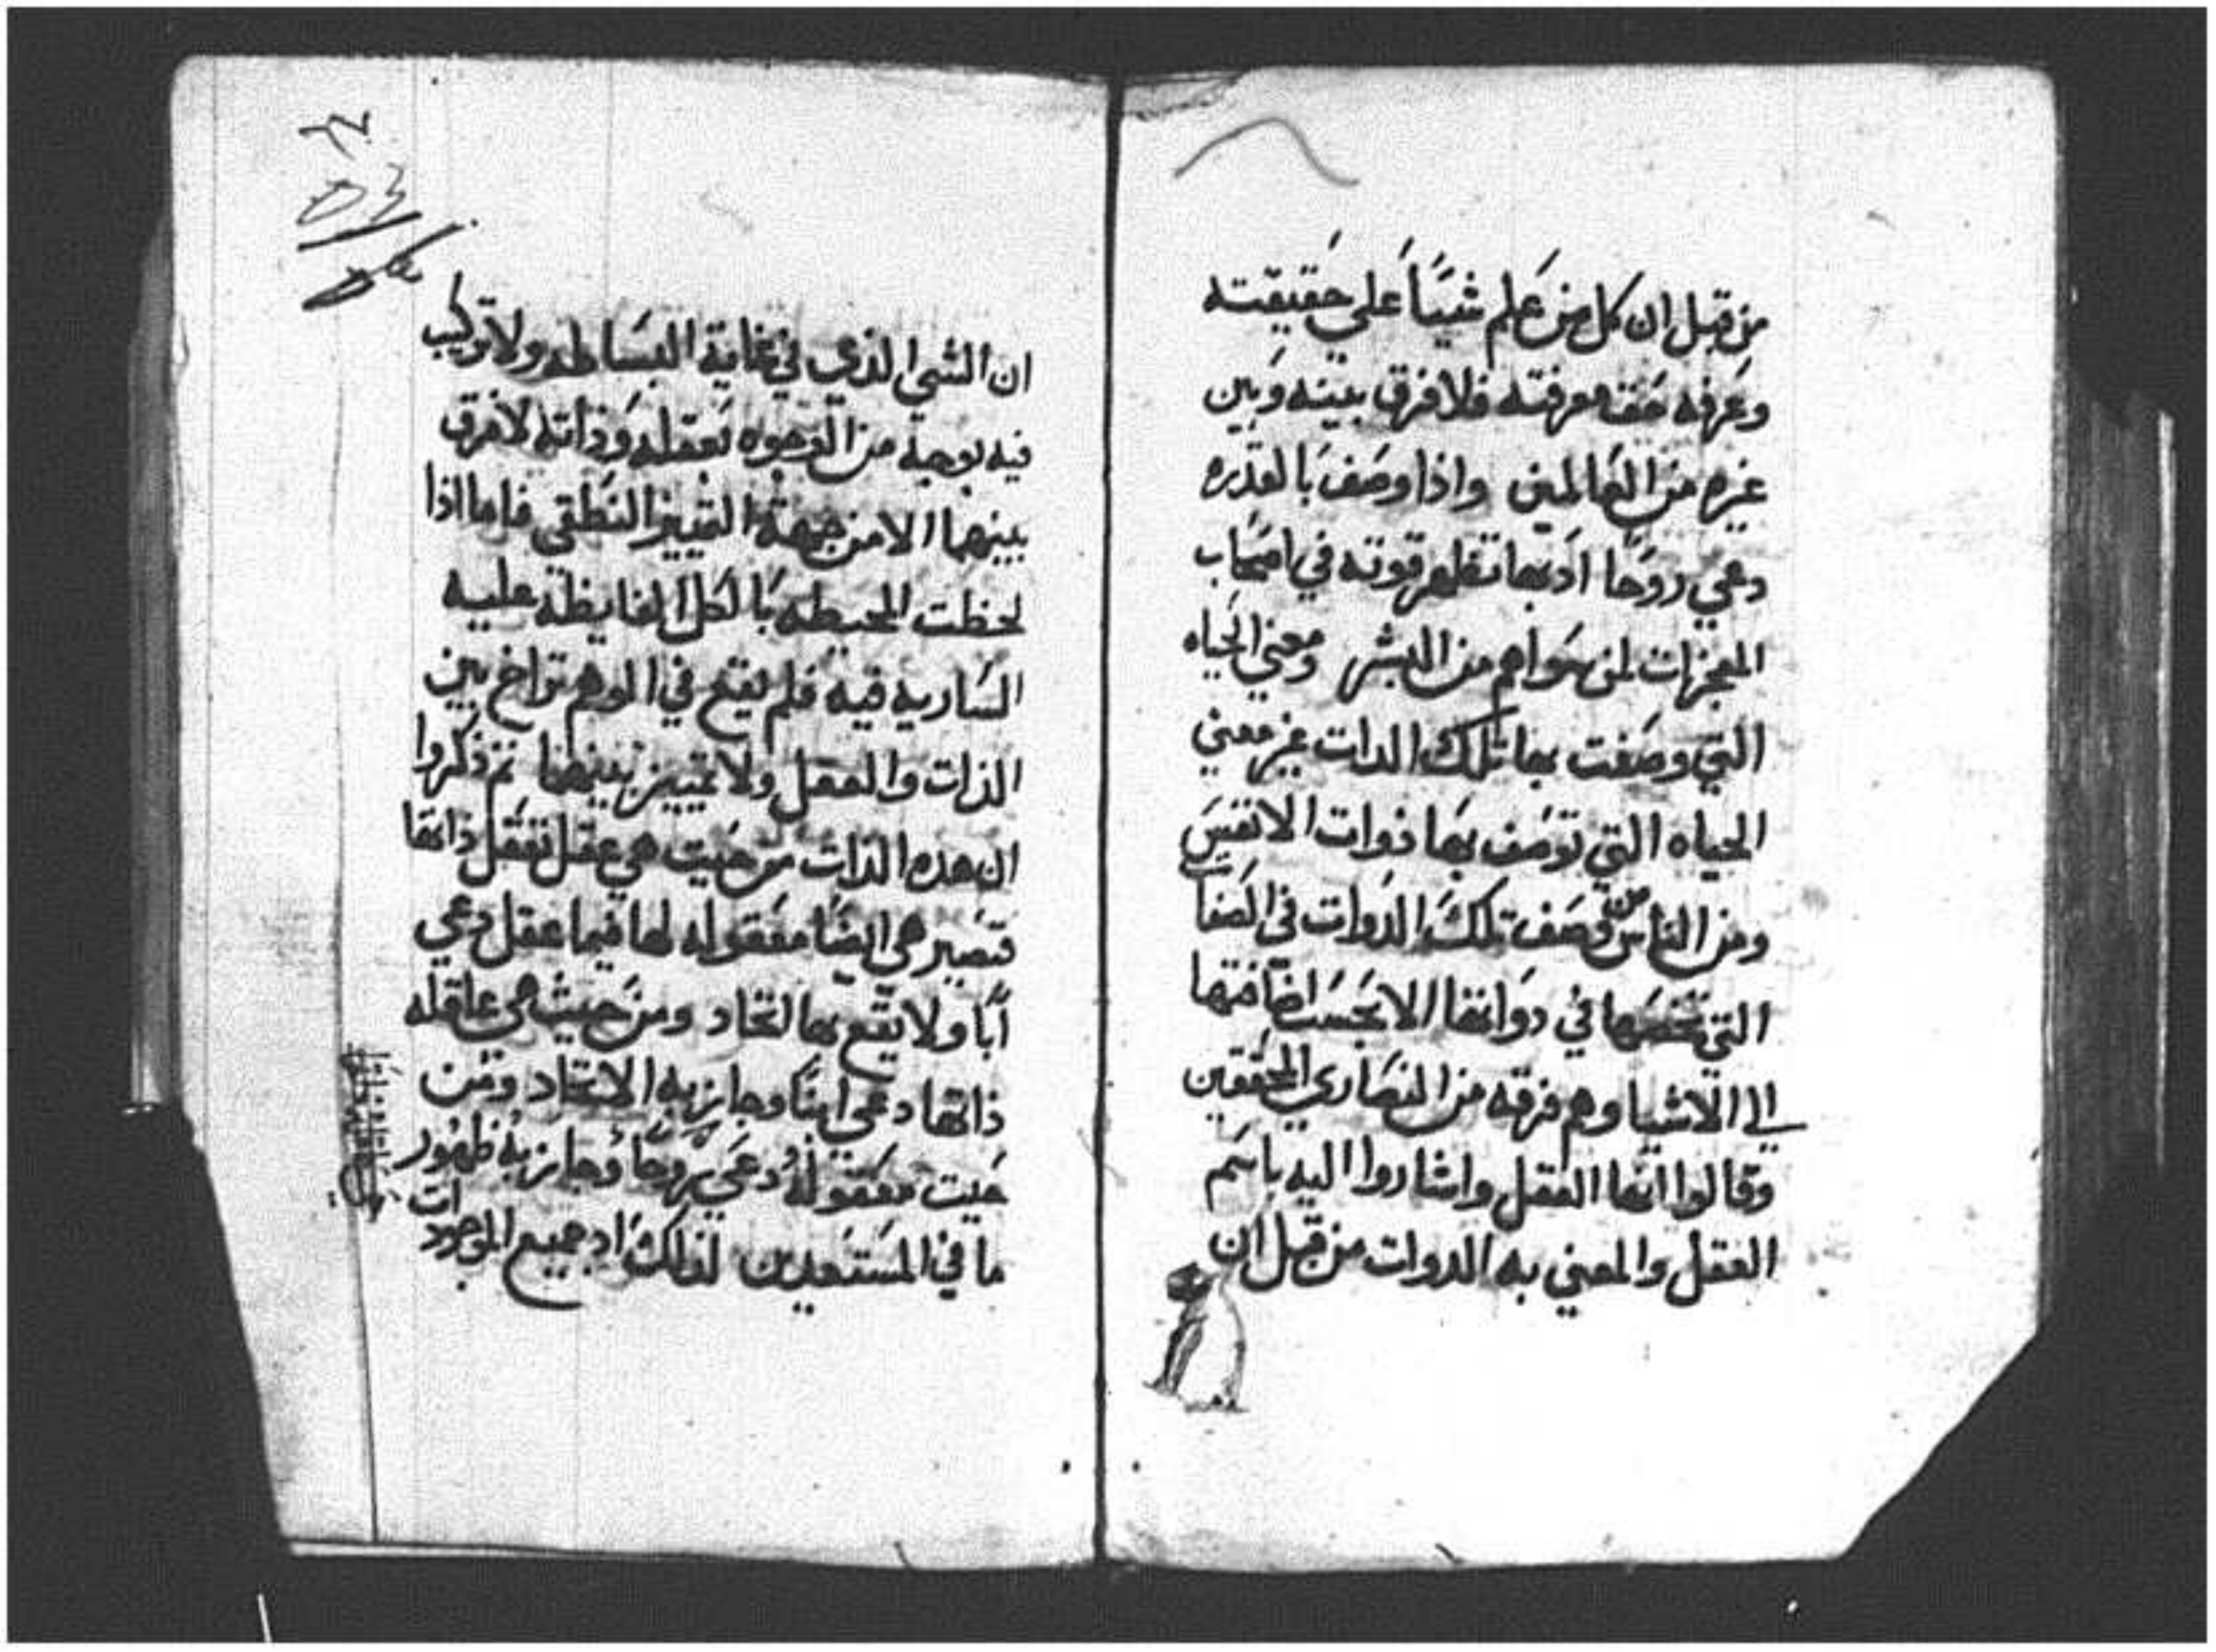 من قبل ان كل من علم شيئاً علي حقيقته
وعرفه حق معرفته فلا فرق بينه وبين
غيره من العالمين واذا وصف بالقدره
دعي روحا اذ بها تظهر قوته في اصحاب
المعجزات لمن سواهم من البشر ومعني الحياه
التي وصفت بها تلك الدات غير معني
الحياه التي توصف بها ذوات الانفس
ومن الناس من وصف تلك الدوات في الصفات
التي تخصها في دواتها الا بحسب اضافتها
الي الاشيا وهم فرقه من النصاري المحققين
وقالوا انها العقل واشاروا اليه باسم
العقل والمعني به الدوات من قبل ان
ان الشي الذي في غاية البساطه ولا تركيب
فيه بوجه من الوجوه تعقله وذاته لا فرق
بينهما الا من جهة التمييز النطقي فاما اذا
لحظت المحيطه بالكل الفايظه عليه
الساريه فيه فلم يقع في الوهم تراخ بين
الذات والعقل ولا تمييز بينهما ثم ذكروا
ان هده الذات من حيت هي عقل تعقل ذاتها
فتصير هي ايضا معقوله لها فيما عقل دعي
آبا ولا يقع بها اتحاد ومن حيث هي عاقله
ذاتها دعي ابنا وجاز به الاتحاد ومن
حيت معقوله دعي روحا وجاز به ظهور
ما في المستعدين لذلك اد جميع الموجودات